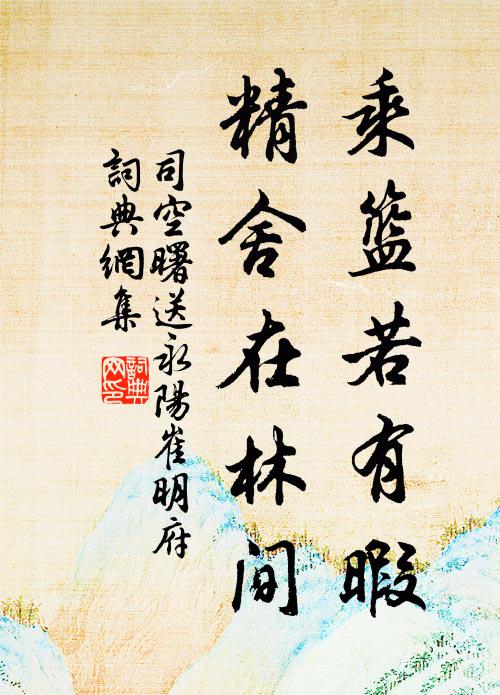 乘籃若有暇
精舍在林间
司空曙送永陽崔明府
詞典網集
詞典網印